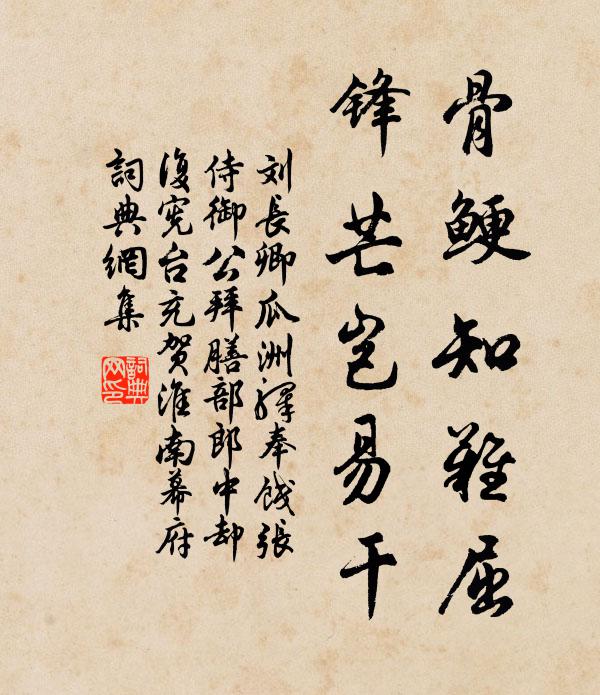 骨鲠知難屈
鋒芒岂易干
刘長卿瓜洲驛奉餞張
侍御公拜膳部郎中却
復宪台充贺淮南幕府
詞典網集
詞典网印